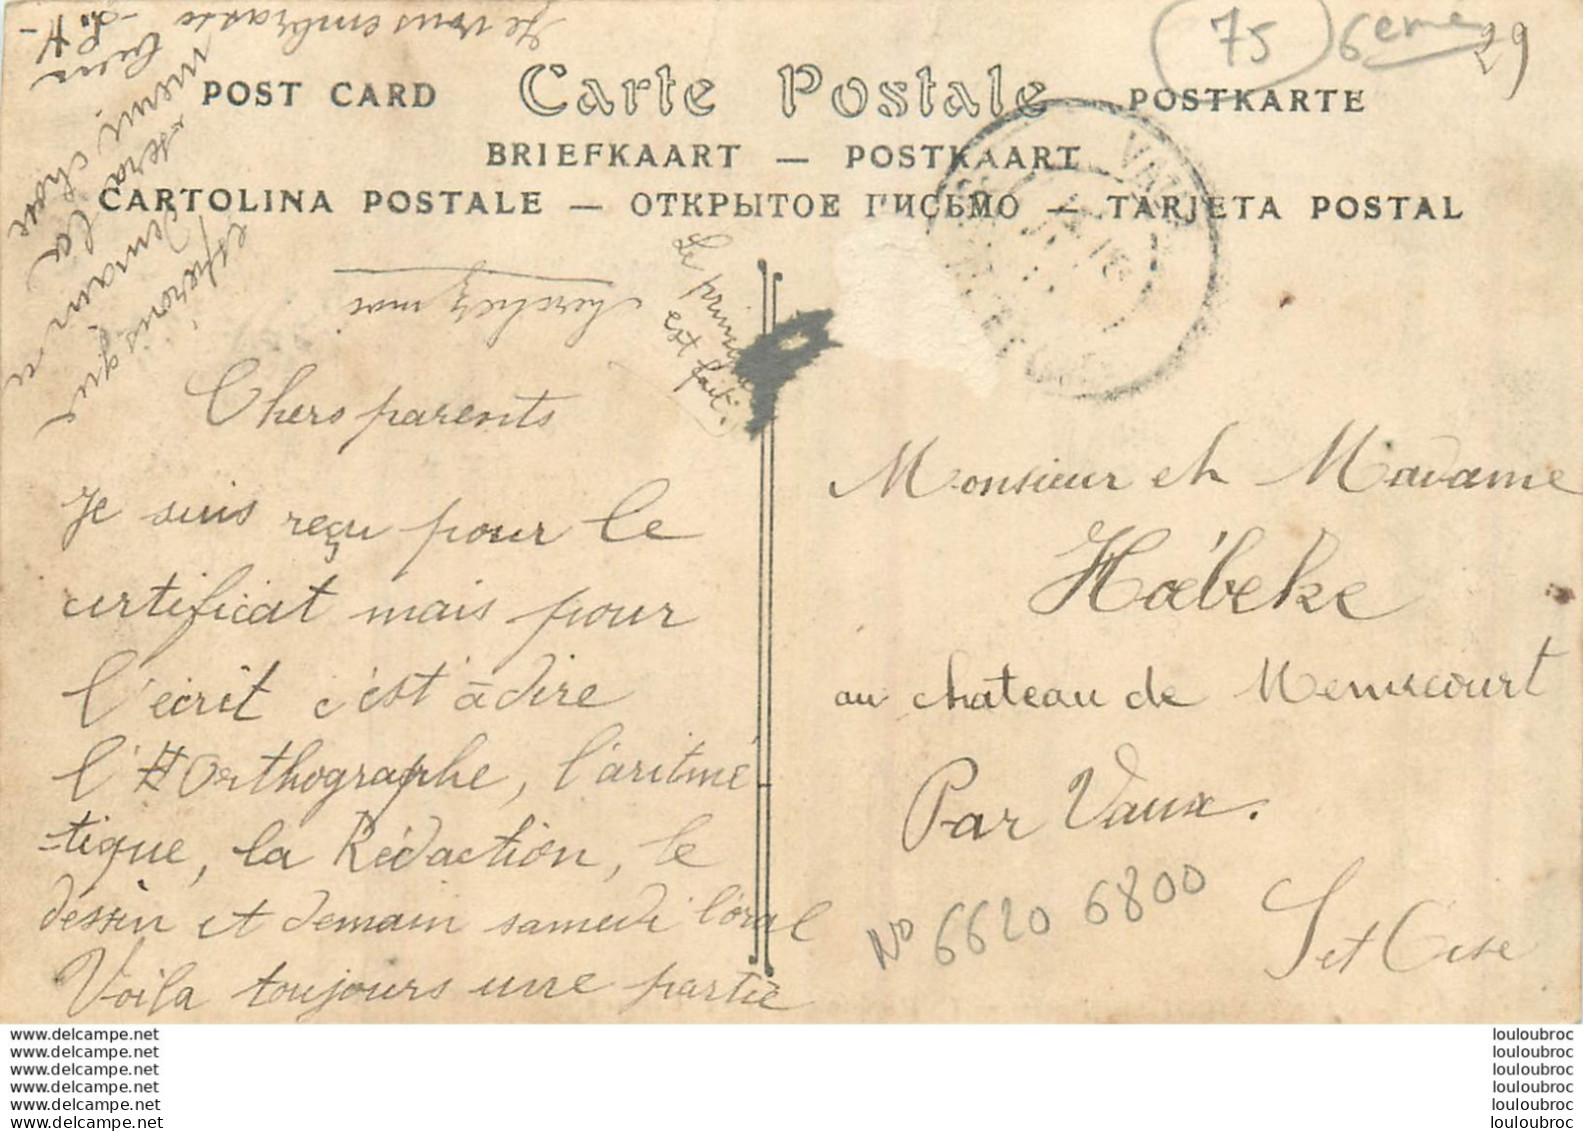 75 6eme
29
POST CARD Carte Postale POSTKARTE
BRIEFKAART — POSTKAART
CARTOLINA POSTALE — ОТКРЫТОЕ ПИСЬМО — TARJETA POSTAL
Chers parents
Je suis reçu pour le
certificat mais pour
l'écrit c'est à dire
l'Orthographe, l'aritmé-
-tique, la Rédaction, le
dessin et demain samedi l'oral
Voila toujours une partie
espérons que
demain
sera la
meme chose
Je vous embrasse
bien
Le principal
est fait.
cherchez moi
Monsieur et Madame
Hoébeke
au chateau de
Par Vaux.
S et Oise
No 6620 6800
www.delcampe.net
www.delcampe.net
www.delcampe.net
www.delcampe.net
www.delcampe.net
www.delcampe.net
louloubroc
louloubroc
louloubroc
louloubroc
louloubroc
louloubroc